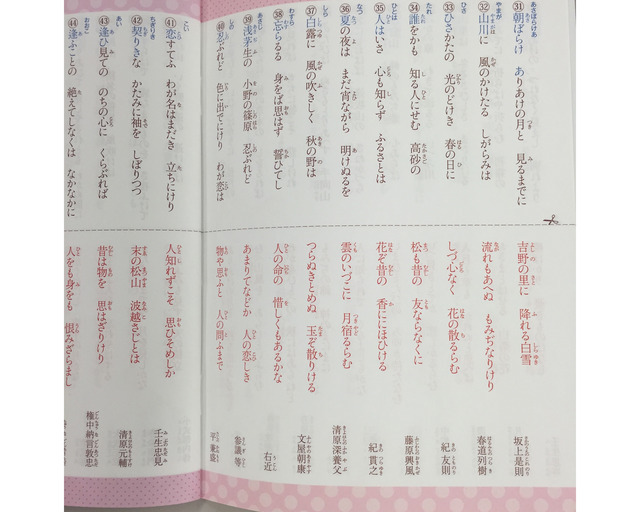 ㉛朝ぼらけ ありあけの月と 見るまでに
吉野の里に 降れる白雪
坂上是則
㉜山川に 風のかけたる しがらみは
流れもあへぬ もみぢなりけり
春道列樹
㉝ひさかたの 光のどけき 春の日に
しづ心なく 花の散るらむ
紀友則
㉞誰をかも 知る人にせむ 高砂の
松も昔の 友ならなくに
藤原興風
㉟人はいさ 心も知らず ふるさとは
花ぞ昔の 香ににほひける
紀貫之
㊱夏の夜は まだ宵ながら 明けぬるを
雲のいづこに 月宿るらむ
清原深養父
㊲白露に 風の吹きしく 秋の野は
つらぬきとめぬ 玉ぞ散りける
文屋朝康
㊳忘らるる 身をば思はず 誓ひてし
人の命の 惜しくもあるかな
右近
㊴浅茅生の 小野の篠原 忍ぶれど
あまりてなどか 人の恋しき
参議等
㊵忍ぶれど 色に出でにけり わが恋は
物や思ふと 人の問ふまで
平兼盛
㊶恋すてふ わが名はまだき 立ちにけり
人知れずこそ 思ひそめしか
壬生忠見
㊷契りきな かたみに袖を しぼりつつ
末の松山 波越さじとは
清原元輔
㊸逢ひ見ての のちの心に くらぶれば
昔は物を 思はざりけり
権中納言敦忠
㊹逢ふことの 絶えてしなくは なかなかに
人をも身をも 恨みざらまし